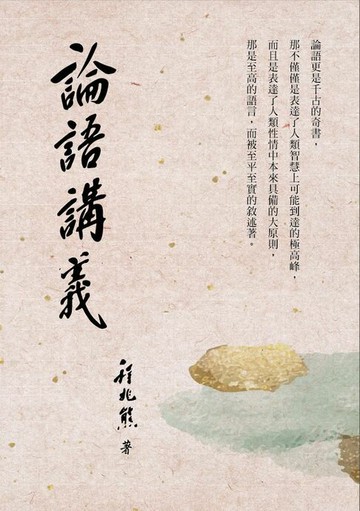 論語更是千古的奇書，
那不僅僅是表達了人類智慧上可能到達的極高峰，
而且是表達了人類性情中本來具備的大原則，
那是至高的語言，而被至平至實的敘述著。
論語講義
程兆熊 著